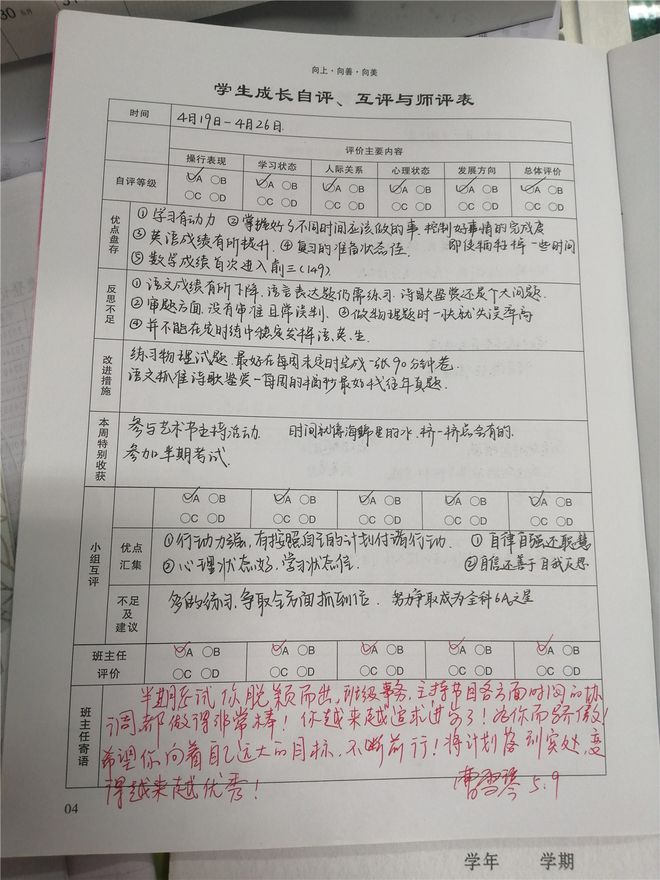 30
向上·向善·向美
学生成长自评、互评与师评表
时间 4月19日-4月26日
评价主要内容
操行表现 学习状态 人际关系 心理状态 发展方向 总体评价
自评等级 A B A B A B A B A B A B
C D C D C D C D C D C D
优点盘存
①学习有动力 ②掌握好了不同时间应该做的事 控制好事情的完成度
③英语成绩有所提升. ④复习的准备状态佳. 即使牺牲掉一些时间
⑤数学成绩首次进入前三(149)
反思不足
①语文成绩有所下降.语言表达题仍需练习.诗歌鉴赏还是个大问题.
②审题方面.没有审准且常误判. ③做物理题时一快就失误率高
④并不能在定时练中稳定发挥语.英.生.
改进措施
练习物理试题.最好在每周末定时完成一张90分钟卷.
语文抓准诗歌鉴赏一每周的摘抄最好找往年真题.
本周特别收获
参与艺术书主持活动. 时间就像海绵里的水.挤一挤总会有的.
参加半期考试.
小组互评
A B A B A B A B A B
C D C D C D C D C D
优点汇集
①行动力强,有按照自己的计划付诸行动. ①自律自强还聪慧
②心理状态好,学习状态佳. ②自信还善于自我反思
不足及建议
多的练习,争取全方面抓到位. 努力争取成为全科6A之星
班主任评价
A B A B A B A B A B
C D C D C D C D C D
班主任寄语
半期考试,你脱颖而出,班级事务,主持节目各方面时间的协
调都做得非常棒!你越来越追求进步了!为你而骄傲!
希望你向着自己远大的目标,不断前行!将计划落到实处,变
得越来越优秀!
5.9
04
学年 学期